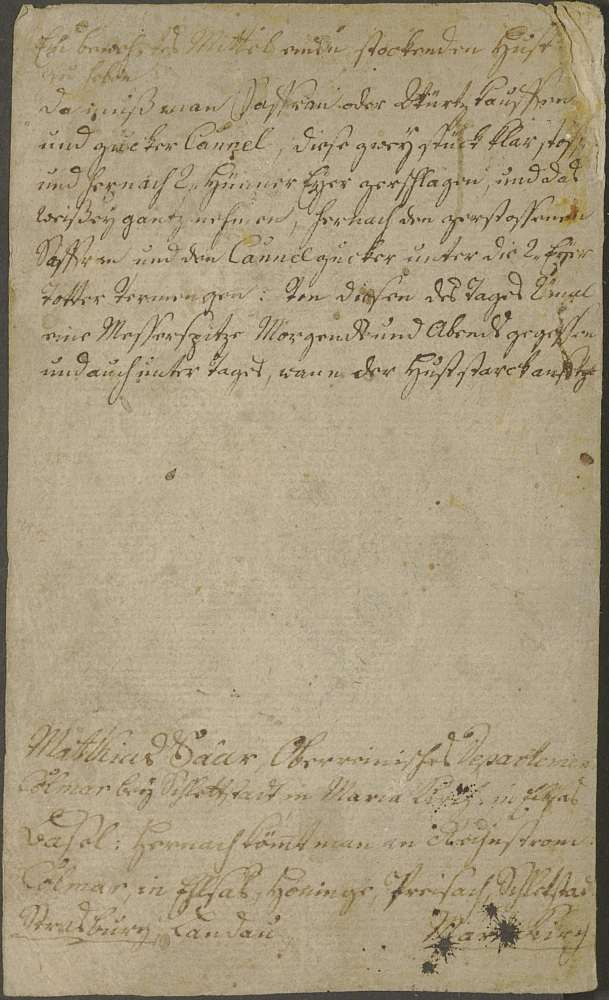 Ein bewehrtes Mittel einen stockenden Hust
zu heben
Da muß man Saffran oder Würtz kauffen
und zucker Cannel, diese zwey stück klar stoß
und hernach 2, Hünner Eyer zerschlagen, und das
weiße gantz nehmen, hernach den zerstossenen
Saffran und den Cannel zucker unter die 2, Eyer
Totter vermengen: Von diesen des Tages 2 mal
eine Messerspitze Morgends und Abends gegessen
und auch unter Tages, wann der Hust starck
Matthias Baar, Oberreinisches Departemen
Colmar bey Schlettstadt in Maria Kirch, in Elsas
Basel: hernach kömt man an Reihnstrom
Colmar in Ellsas, Honinge, Preisach, Schletstad
Strasburg, Landau Mar Kirg